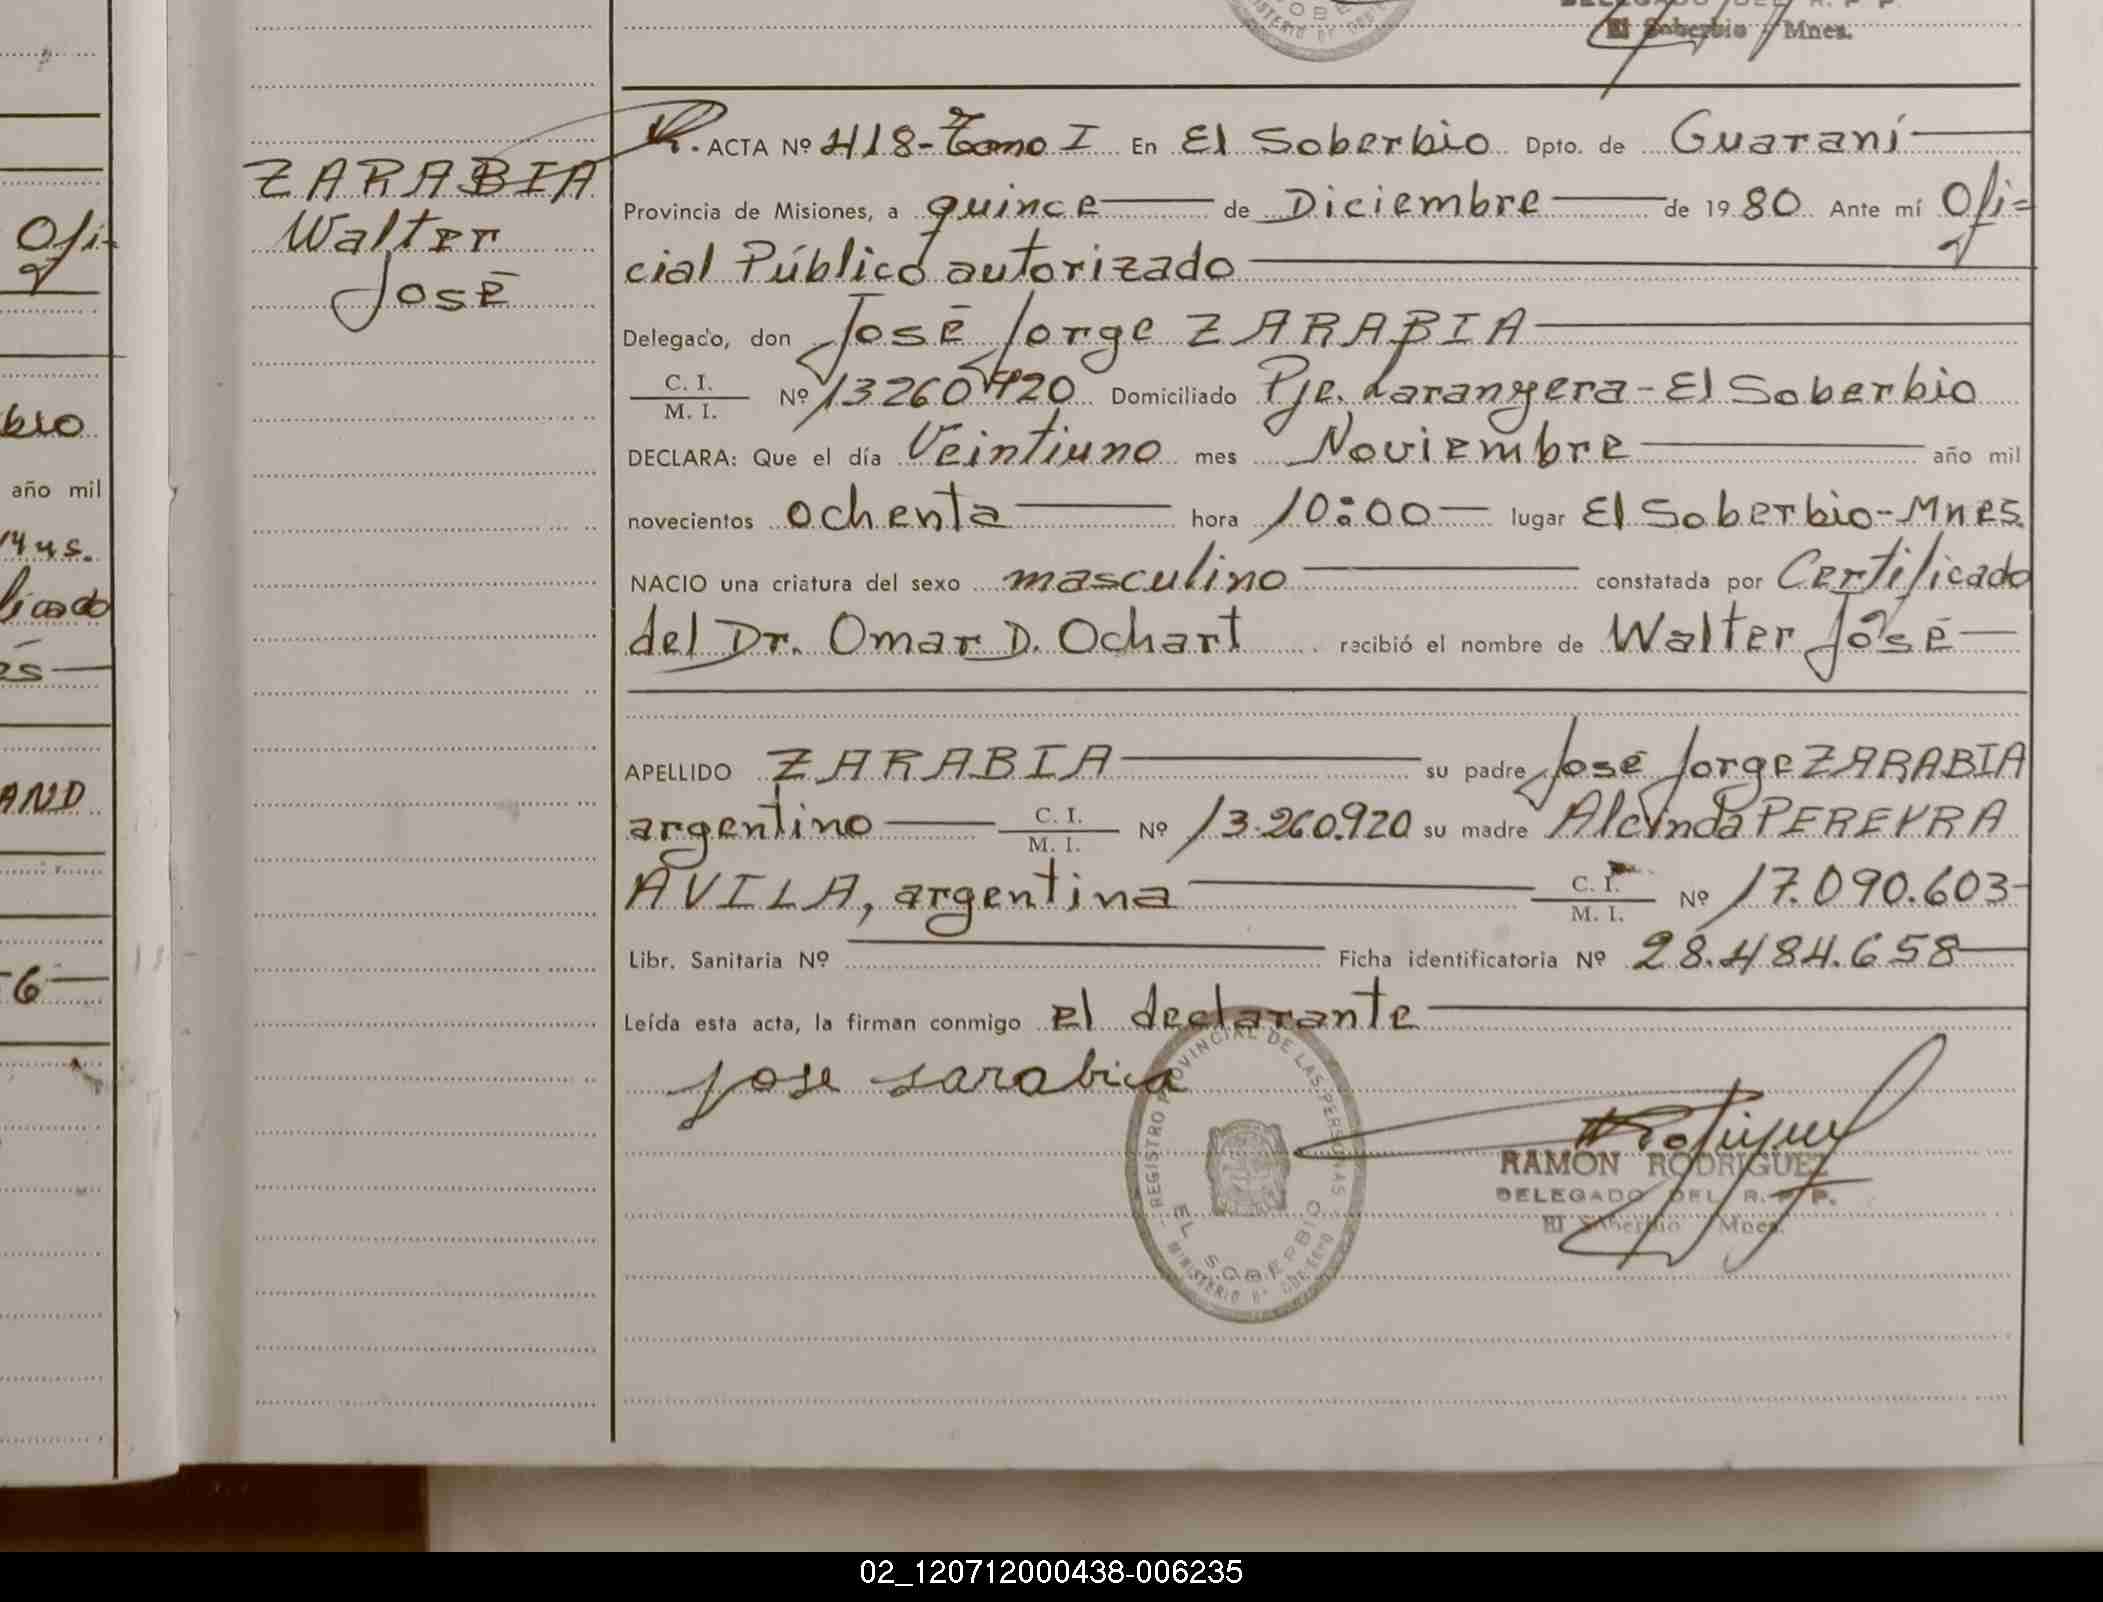 DELEGADO DEL R. P. P.
El Soberbio Mnes.
ZARABIA
Walter
José
ACTA Nº 418-Tomo I En El Soberbio Dpto. de Guaraní
Provincia de Misiones, a quince de Diciembre de 1980 Ante mí Ofi=
cial Público autorizado
Delegado, don José Jorge ZARABIA
C. I.
M. I. Nº 13260920 Domiciliado Pje. Laranyera - El Soberbio
DECLARA: Que el día Veintiuno mes Noviembre año mil
novecientos ochenta hora 10:00 lugar El Soberbio-Mnes.
NACIO una criatura del sexo masculino constatada por Certificado
del Dr. Omar D. Ochart recibió el nombre de Walter José
APELLIDO ZARABIA su padre José Jorge ZARABIA
argentino C. I.
M. I. Nº 13.260.920 su madre Alcinda PEREYRA
AVILA, argentina C. I.
M. I. Nº 17.090.603
Libr. Sanitaria Nº Ficha identificatoria Nº 28.484.658
Leída esta acta, la firman conmigo el declarante
jose sarabia
REGISTRO PROVINCIAL DE LAS PERSONAS
EL SOBERBIO
RAMON RODRIGUEZ
DELEGADO DEL R. P. P.
El Soberbio Mnes.
Ofi-
bio
año mil
AND
02_120712000438-006235